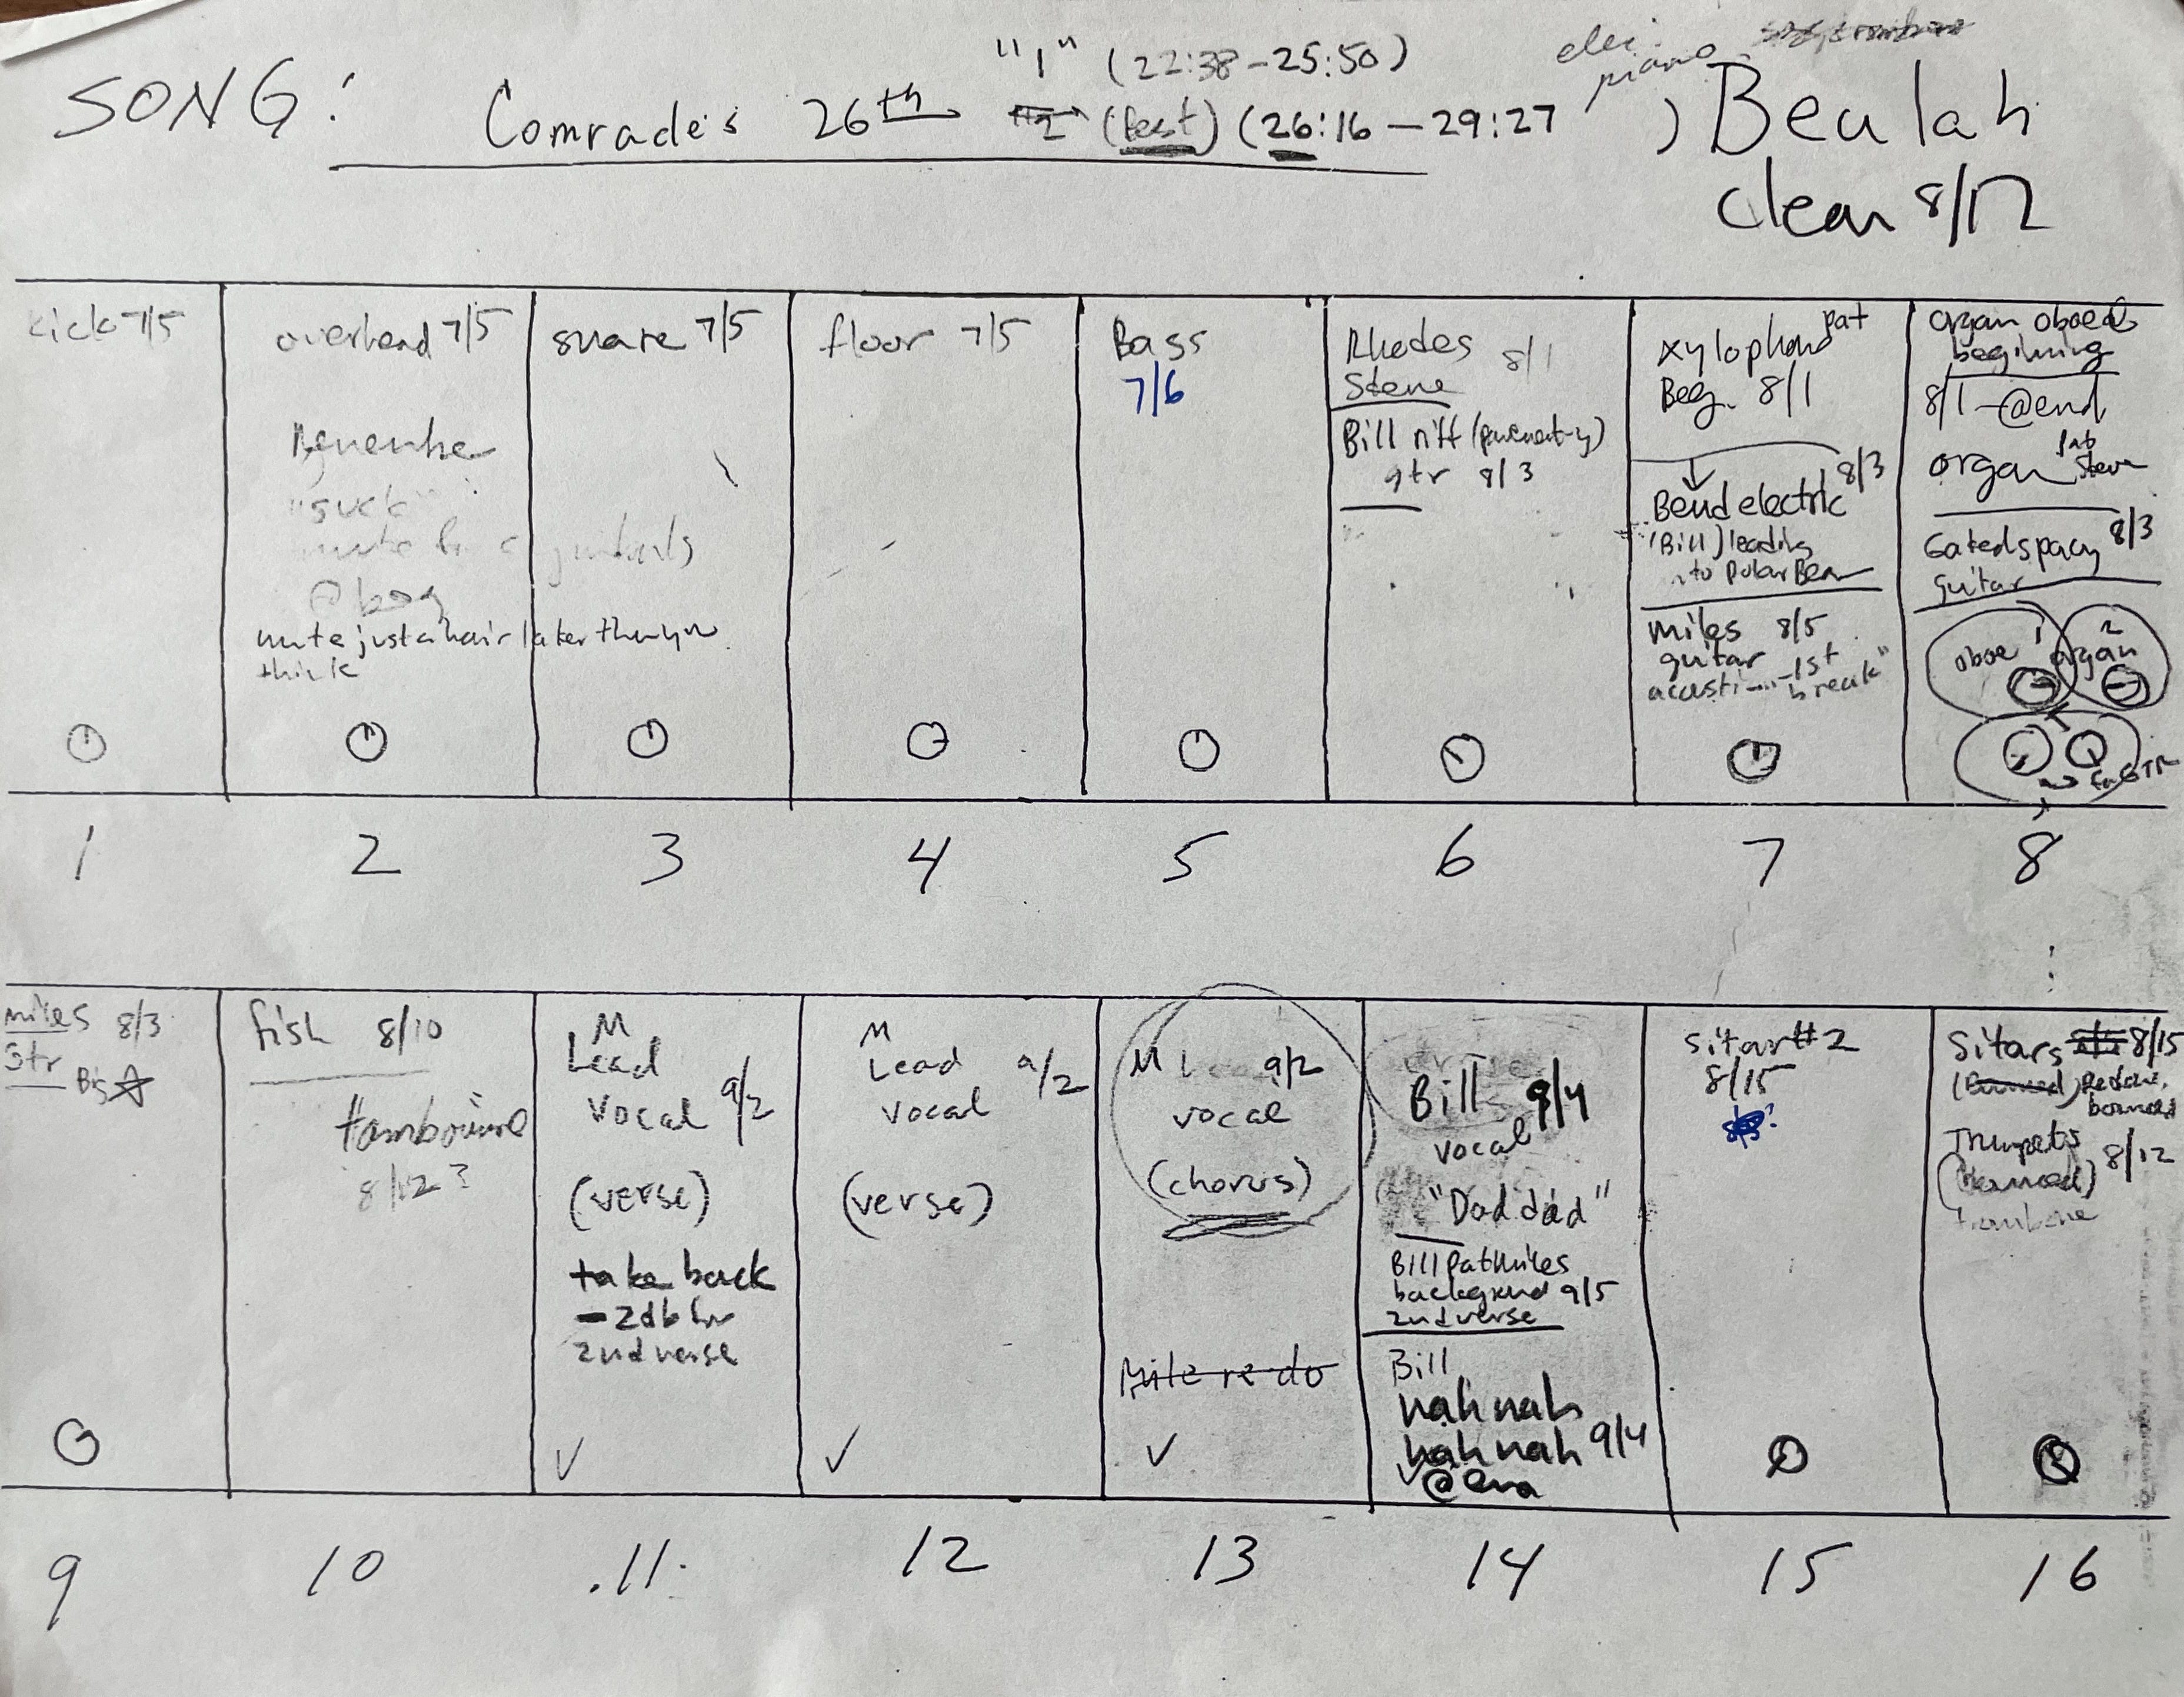 SONG: Comrade's 26th "1" (22:38-25:50)
"2" (best) (26:16-29:27)
elec. piano
Beulah
clean 8/12
kick 7/5
overhead 7/5
Remember
"suck"
mute
@ beg
mute just a hair later than you
think
snare 7/5
floor 7/5
Bass
7/6
Rhodes 8/1
Steve
Bill riff (pavement-y)
gtr 8/3
xylophone pat
Beg. 8/1
Bend electric 8/3
(Bill) leading
into Polar Bear
miles 8/5
guitar
1st
break"
organ oboe
beginning
8/1 - @end
organ pat
Steve
Gated spacy 8/3
guitar
oboe 1
organ 2
GTR
1 2 3 4 5 6 7 8
miles 8/3
Gtr
fish 8/10
tambourine
8/12?
M
Lead
vocal 9/2
(verse)
take back
-2db for
2nd verse
M
Lead 9/2
vocal
(verse)
M 9/2
vocal
(chorus)
re do
Bill 9/4
vocal
Bill Pat Miles
background 9/5
2nd verse
Bill
nah nah
nah nah 9/4
@ end
sitar #2
8/15
Sitars 8/15
(Bounced) Redone,
bounced
Trumpets 8/12
(Bounced)
trombone
9 10 11 12 13 14 15 16